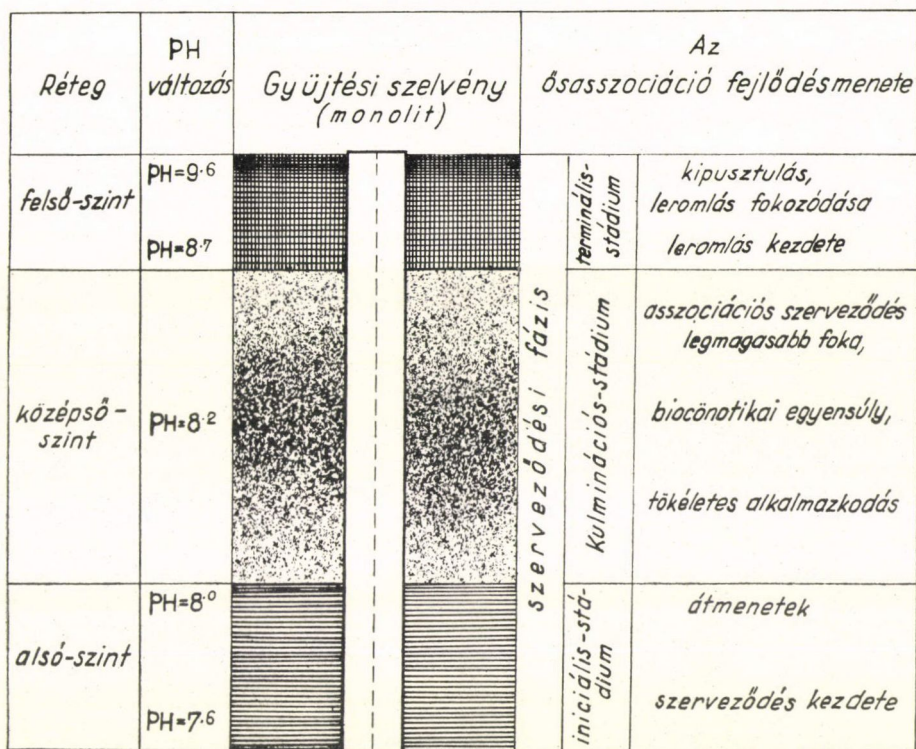 Réteg
PH
változás
Gyüjtési szelvény
(monolit)
Az
ősasszociáció fejlődésmenete
felső-szint
PH=9·6
PH=8·7
szerveződési fázis
terminális-
stádium
kipusztulás,
leromlás fokozódása
leromlás kezdete
középső-
szint
PH=8·2
Kulminációs-stádium
asszociációs szerveződés
legmagasabb foka,
biocönotikai egyensúly,
tökéletes alkalmazkodás
alsó-szint
PH=8·0
PH=7·6
iniciális-stá-
dium
átmenetek
szerveződés kezdete